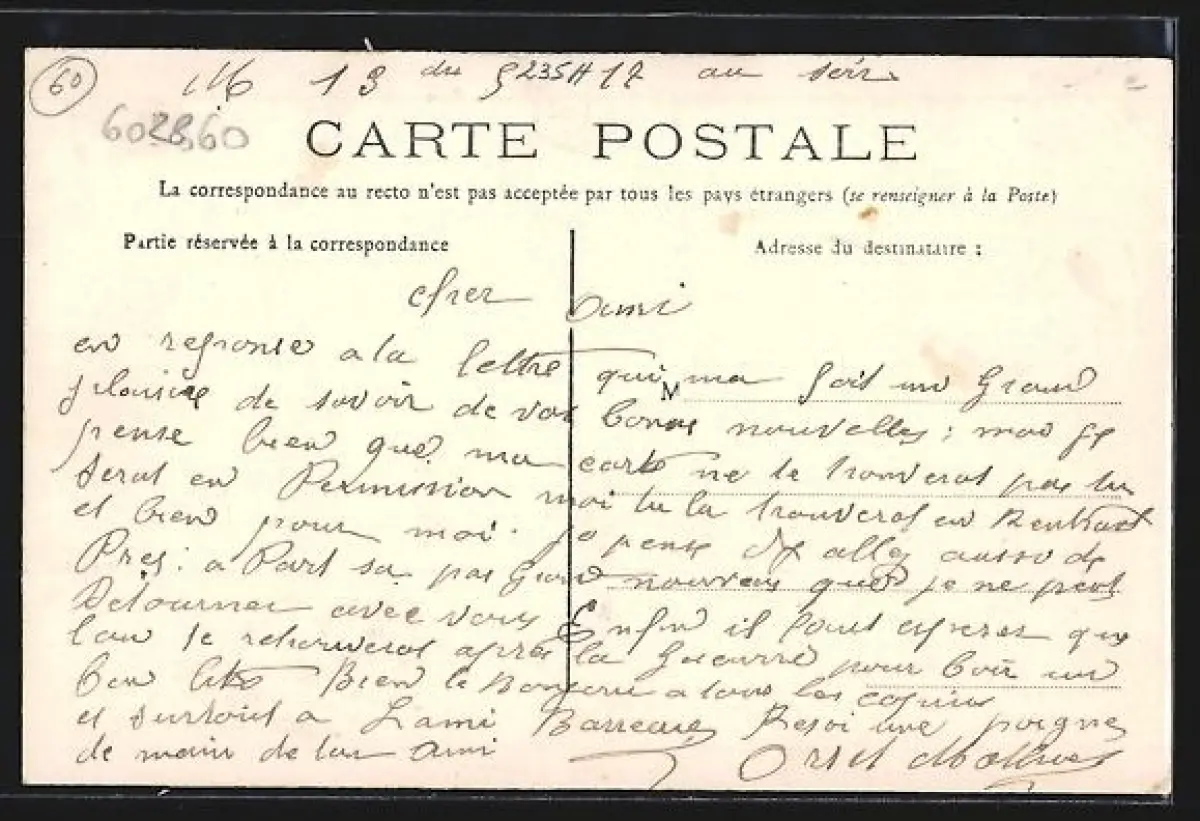 60
13 du 5235H17 au soir
602860
CARTE POSTALE
La correspondance au recto n'est pas acceptée par tous les pays étrangers (se renseigner à la Poste)
Partie réservée à la correspondance
Adresse du destinataire :
cher ami
en reponse a la lettre qui ma fait un Grand
M
plaisire de savoir de vos bones nouvelles; moi je
pense bien que ma carte ne te trouverat pas tu
serat en Permission moi tu la trouverat en Rentrant
et bien pour moi. je pense allez aussi de
Pres: a Part sa pas Grand nouveau que je ne peut
Detourner avec vous Enfin il faut esperer que
lon se retrouverat après la Guerre pour boir un
bon Bien le Bonjour a tous les copins
et surtout a Lami Barreau Resoi une poigne
de main de ton ami